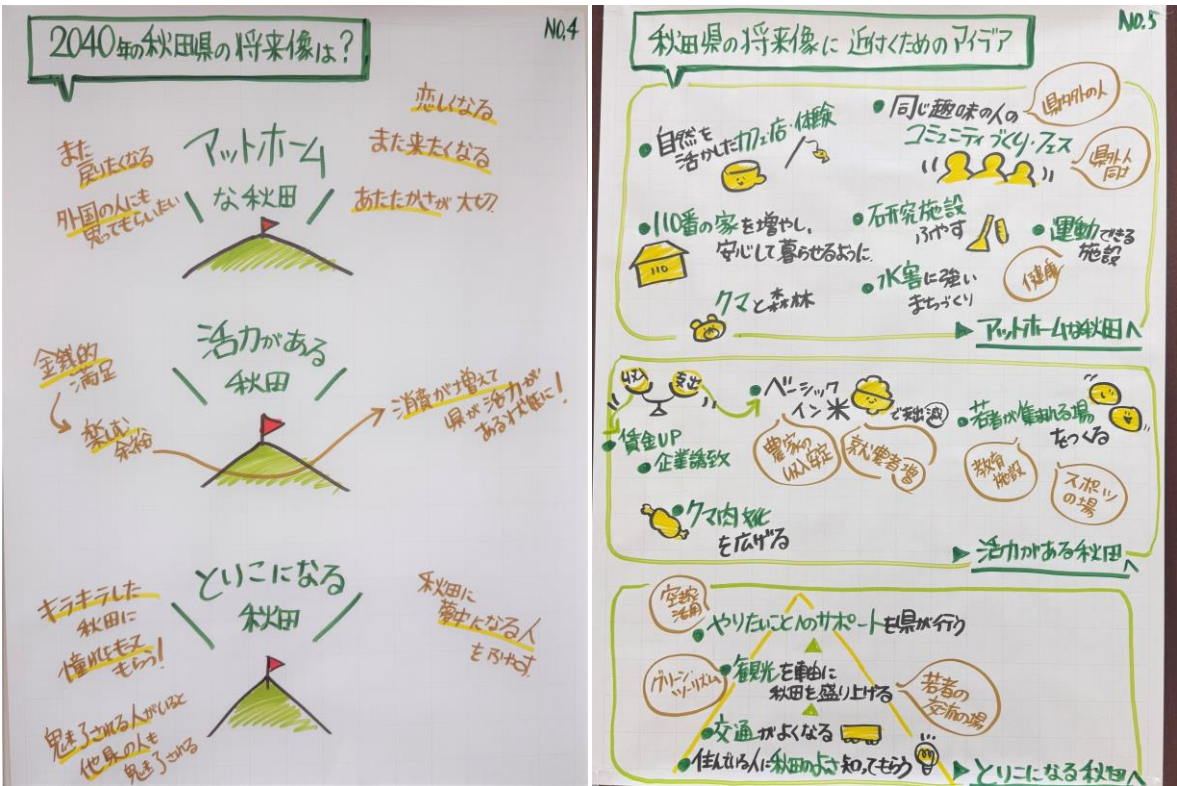 2040年の秋田県の将来像は？
No,4
アットホーム
な秋田
また
戻りたくなる
外国の人にも
思ってもらいたい
恋しくなる
また来たくなる
あたたかさが大切
活力がある
秋田
金銭的
満足
楽しむ
余裕
消費が増えて
県が活力が
ある状態に！
とりこになる
秋田
キラキラした
秋田に
憧れをもって
もらう！
魅了される人がいると
他県の人も
魅了される
秋田に
夢中になる人
をふやす
秋田県の将来像に近付くためのアイデア
No.5
自然を
活かしたカフェ店・体験
同じ趣味の人の
コミュニティづくり・フェス
県内外の人
県外人
同士
110番の家を増やし、
安心して暮らせるように
110
研究施設
ふやす
運動できる
施設
健康
クマと森林
水害に強い
まちづくり
アットホームな秋田へ
収入
支出
賃金UP
企業誘致
ベーシック
イン米
で支出減
農家の
収入安定
就農者増
若者が集まれる場
をつくる
教育
施設
スポーツ
の場
クマ肉文化
を広げる
活力がある秋田へ
空き家
活用
やりたいことへのサポートを県が行う
グリーン
ツーリズム
観光を軸に
秋田を盛り上げる
若者の
交流の場
交通がよくなる
住んでいる人に秋田のよさ知ってもらう
とりこになる秋田へ